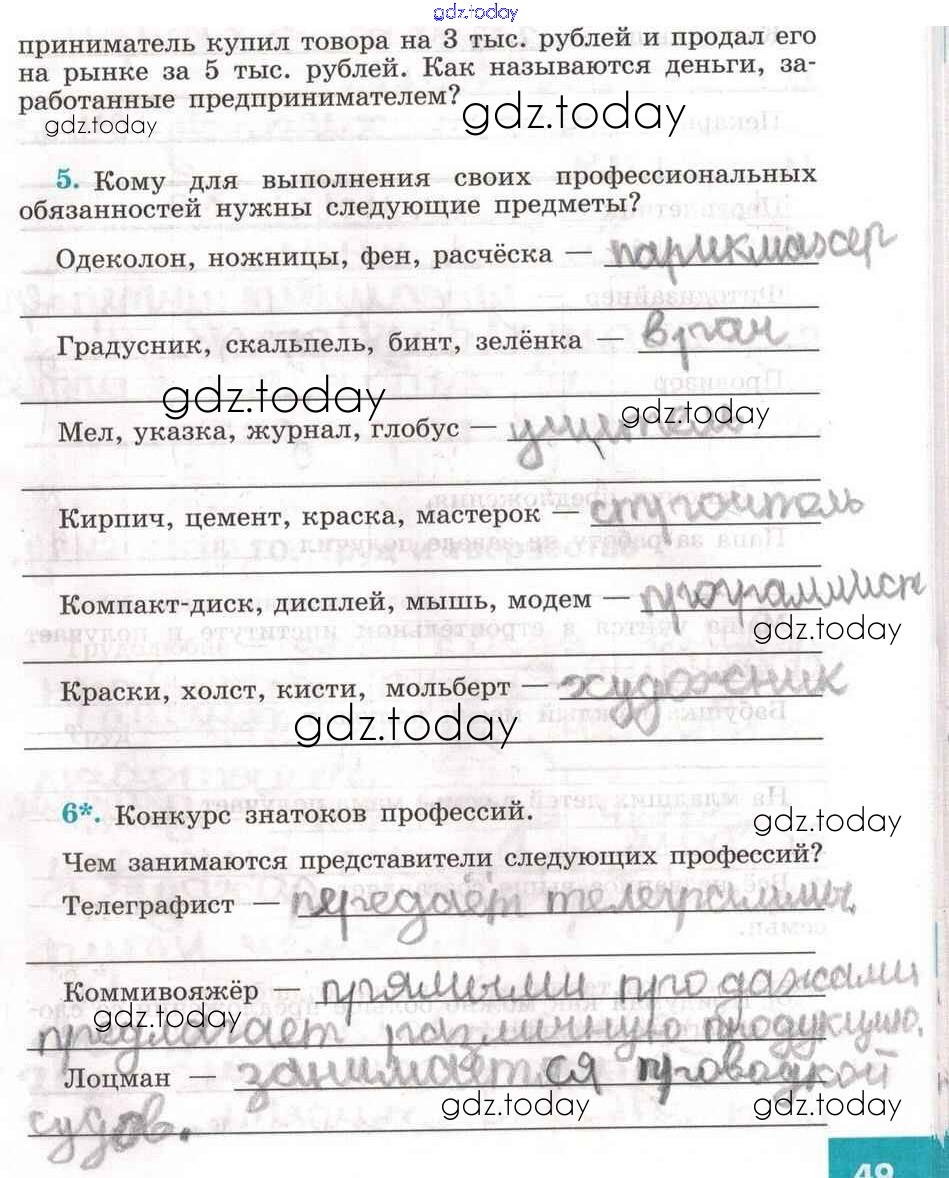 gdz.today
приниматель купил товора на 3 тыс. рублей и продал его
на рынке за 5 тыс. рублей. Как называются деньги, за-
работанные предпринимателем?
gdz.today gdz.today
5. Кому для выполнения своих профессиональных
обязанностей нужны следующие предметы?
Одеколон, ножницы, фен, расчёска — парикмахер
Градусник, скальпель, бинт, зелёнка — врач
gdz.today gdz.today
Мел, указка, журнал, глобус — учитель
Кирпич, цемент, краска, мастерок — строитель
Компакт-диск, дисплей, мышь, модем — программист
gdz.today
Краски, холст, кисти, мольберт — художник
gdz.today
6*. Конкурс знатоков профессий.
gdz.today
Чем занимаются представители следующих профессий?
Телеграфист — передаёт телеграммы.
Коммивояжёр — прямыми продажами
gdz.today
предлагает различную продукцию.
Лоцман — занимается проводкой
gdz.today gdz.today
судов.
49